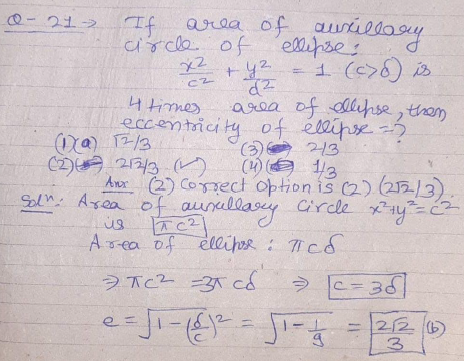 Q-21 → If area of auxillary
circle of ellipse:
x2/c2 + y2/d2 = 1 (c>δ) is
4 times area of ellipse, then
eccentricity of ellipse =?
(1)(a) √2/3 (3) 2/3
(2) 2√2/3 (✓) (4) 1/3
Ans (2) Correct option is (2) (2√2/3)
Soln: Area of auxillary circle x²+y²=c²
is πc2
Area of ellipse : πcδ
⇒ πc2 = 3πcδ ⇒ c = 3δ
e = √1-(δ/c)2 = √1-1/9 = 2√2/3 (b)